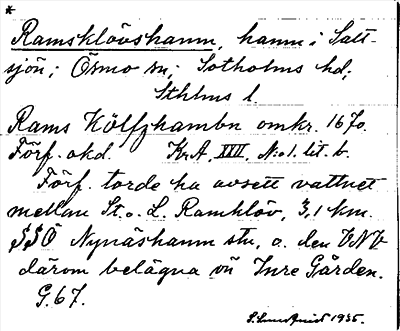 *
Ramsklövshamn, hamn i Salt-
sjön; Ösmo sn; Sotholms hd;
Sthlms l.
Rams Kölfzhambn omkr. 1670.
Förf. okd. KrA, XXII, N:o 1. lit. b.
Förf. torde ha avsett vattnet
mellan St. o. L. Ramklöv, 3,1 km.
SSÖ Nynäshamn stn, o. den VNV
därom belägna ön Inre Gården.
G. 67.
S. Lundquist 1935.